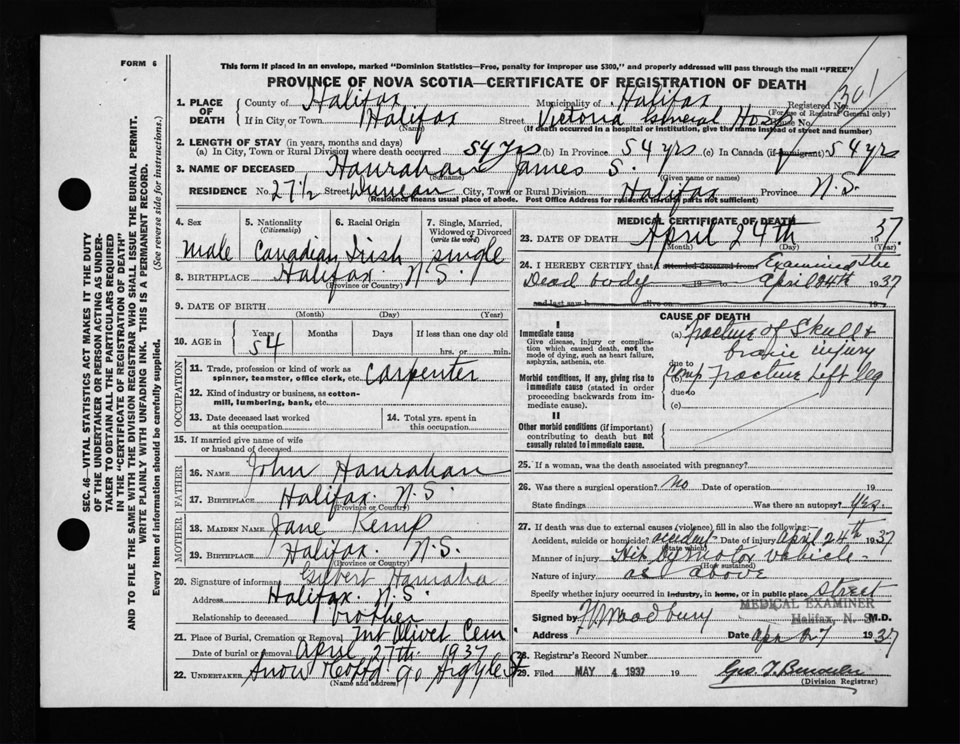 FORM 6
This form if placed in an envelope, marked "Dominion Statistics—Free, penalty for improper use $300," and properly addressed will pass through the mail "FREE"
PROVINCE OF NOVA SCOTIA—CERTIFICATE OF REGISTRATION OF DEATH
301
1. PLACE OF DEATH
County of Halifax Municipality of Halifax Registered No.
(For use of Registrar General only)
If in City or Town Halifax Street Victoria General Hosp House No.
(Name) (If death occurred in a hospital or institution, give the name instead of street and number)
2. LENGTH OF STAY (in years, months and days)
(a) In City, Town or Rural Division where death occurred 54 yrs (b) In Province 54 yrs (c) In Canada (if immigrant) 54 yrs
3. NAME OF DECEASED Hanrahan James S.
(Surname) (Given name or names)
RESIDENCE No. 27½ Street Duncan City, Town or Rural Division Halifax Province N.S.
(Residence means usual place of abode. Post Office Address for residents in rural parts not sufficient)
4. Sex
male
5. Nationality (Citizenship)
Canadian
6. Racial Origin
Irish
7. Single, Married, Widowed or Divorced (write the word)
single
8. BIRTHPLACE Halifax. N.S.
(Province or Country)
9. DATE OF BIRTH
(Month) (Day) (Year)
10. AGE in
Years Months Days If less than one day old
54 hrs. or min.
OCCUPATION
11. Trade, profession or kind of work as spinner, teamster, office clerk, etc. Carpenter
12. Kind of industry or business, as cotton-mill, lumbering, bank, etc.
13. Date deceased last worked at this occupation
14. Total yrs. spent in this occupation
15. If married give name of wife or husband of deceased
FATHER
16. NAME John Hanrahan
17. BIRTHPLACE Halifax. N.S.
(Province or Country)
MOTHER
18. MAIDEN NAME Jane Kemp
19. BIRTHPLACE Halifax N.S.
(Province or Country)
20. Signature of informant Gilbert Hanraha
Address Halifax. N.S.
Relationship to deceased brother
21. Place of Burial, Cremation or Removal Mt Olivet Cem
Date of burial or removal April 27th 1937
22. UNDERTAKER Snow 90 Argyle St
(Name and address)
MEDICAL CERTIFICATE OF DEATH
23. DATE OF DEATH April 24th 1937.
(Month) (Day) (Year)
24. I HEREBY CERTIFY that I attended deceased from Examined the
Dead body 19 to April 24th 1937
and last saw h alive on 19
CAUSE OF DEATH
I
Immediate cause
Give disease, injury or complication which caused death, not the mode of dying, such as heart failure, asphyxia, asthenia, etc.
(a) Fracture of Skull &
brain injury
due to
Morbid conditions, if any, giving rise to immediate cause (stated in order proceeding backwards from immediate cause).
(b) Comp Fracture Left leg
due to
(c)
II
Other morbid conditions (if important) contributing to death but not causally related to immediate cause.
25. If a woman, was the death associated with pregnancy?
26. Was there a surgical operation? No Date of operation 19
State findings Was there an autopsy? Yes.
27. If death was due to external causes (violence) fill in also the following:
Accident, suicide or homicide? accident Date of injury April 24th 1937
(State which)
Manner of injury Hit by motor vehicle
(How sustained)
Nature of injury as above
Specify whether injury occurred in industry, in home, or in public place street
MEDICAL EXAMINER
Halifax, N. S.
Signed by M.D.
Address Date Apr 27 1937
28. Registrar's Record Number
29. Filed MAY 4 1937 19
(Division Registrar)
SEC. 46—VITAL STATISTICS ACT MAKES IT THE DUTY
OF THE UNDERTAKER OR PERSON ACTING AS UNDERTAKER
TO OBTAIN ALL THE PARTICULARS REQUIRED
IN THE "CERTIFICATE OF REGISTRATION OF DEATH"
AND TO FILE THE SAME WITH THE DIVISION REGISTRAR WHO SHALL ISSUE THE BURIAL PERMIT.
WRITE PLAINLY WITH UNFADING INK. THIS IS A PERMANENT RECORD.
Every item of information should be carefully supplied. (See reverse side for instructions.)